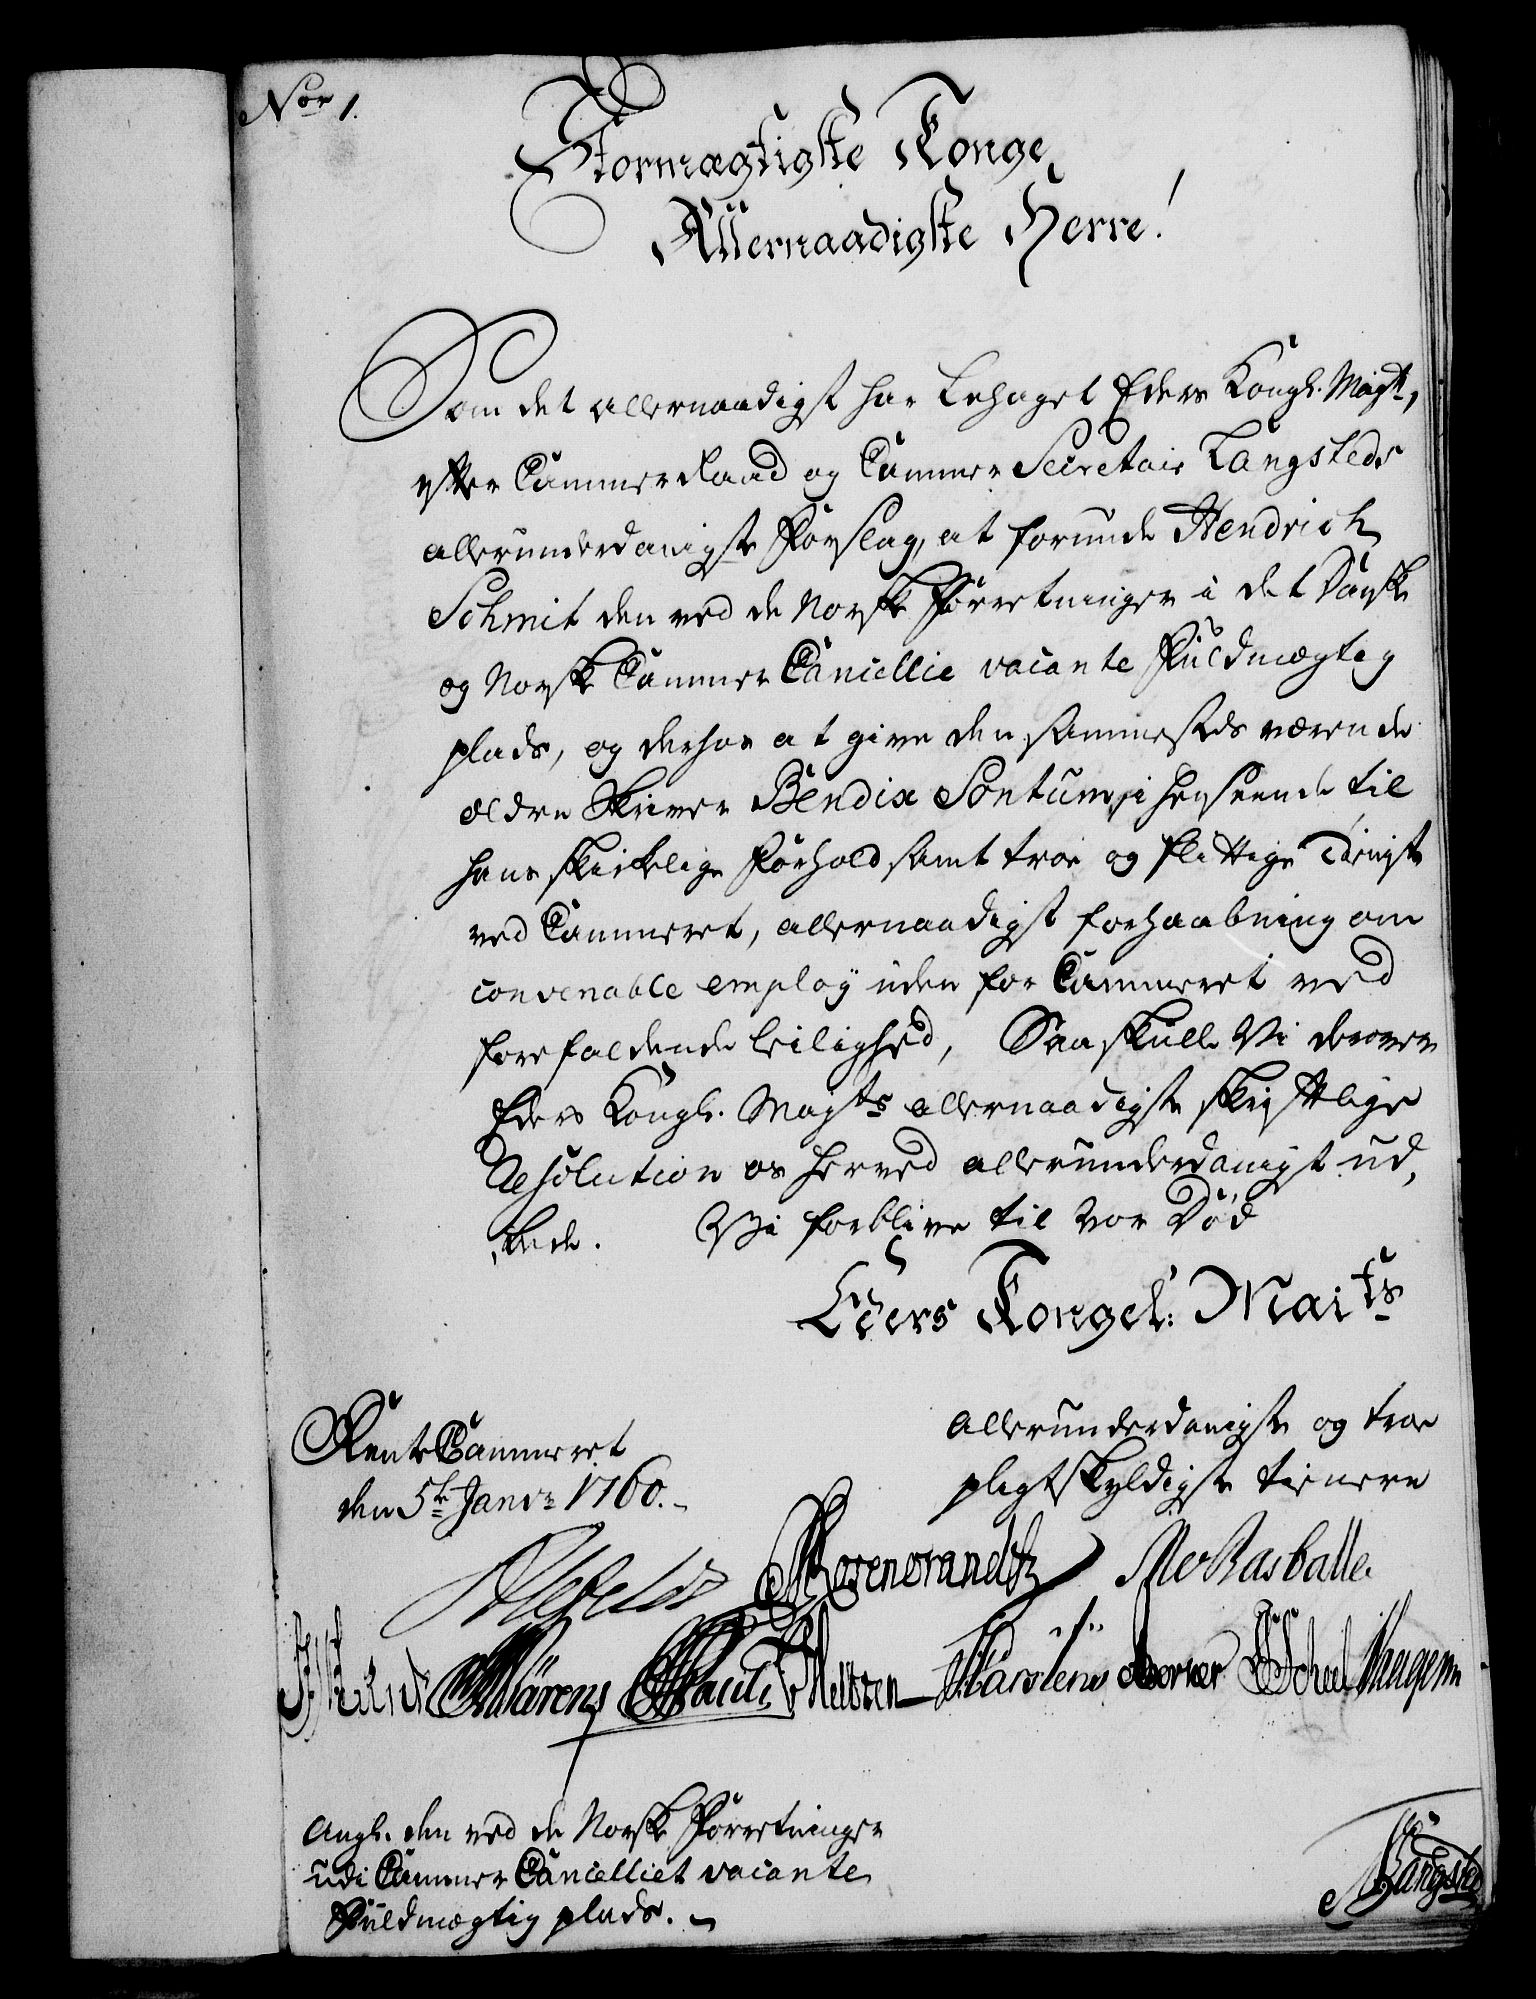 Nor 1.
Stormægtigste Konge
Allernaadigste Herre!
Som det allernaadigst har behaget Eders Kongl. Mayt,
efter Cammer Raad og Cammer Secretair Langsteds
allerunderdanigste Forslag, at forunde Hendrich
Schmit den ved de Norske Forretninger i det Danske
og Norske Cammer Cancellie vacante Fuldmægtig
plads, og derhos at give den sammesteds værende
ældre Skriver Bendix Sontum, i henseende til
hans skikkelige Forhold samt troe og flittige Tieniste
ved Cammeret, allernaadigst forhaabning om
convenable employ uden for Cammeret ved
forefaldende leilighed, Saa skulle Vi derover
Eders Kongl. Mayts allernaadigste skriftlige
Resolution os herved allerunderdanigst ud,
bede. Vi forblive til vor Død
Eders Kongel: Maits
allerunderdanigste og troe
pligtskyldigste tienere
RenteCammeret
den 5te Janvr 1760.
Ahlefeldt
Rasballe.
Pauli Scheel
Angl. den ved de Norske Forretninger
udi Cammer Cancelliet vacante
Fuldmægtig plads.
Langsted